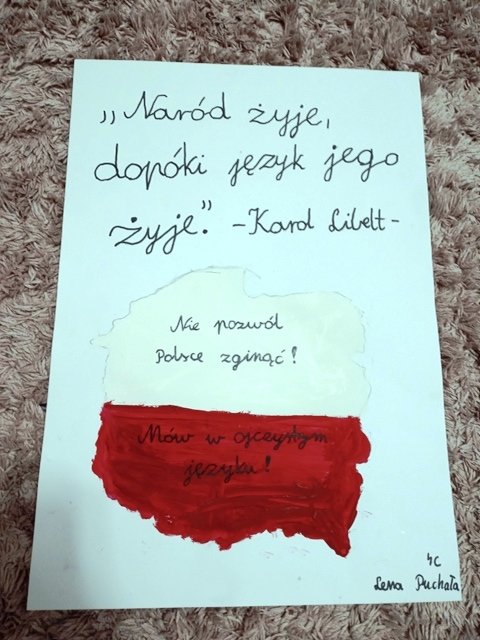 ,,Naród żyje,
dopóki język jego
żyje." - Karol Libelt -
Nie pozwól
Polsce zginąć!
Mów w ojczystym
języku!
4C
Lena Puchała